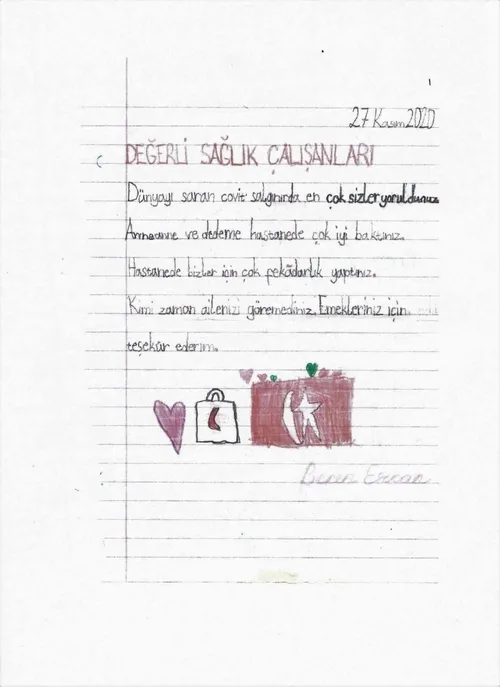 27 Kasım 2020
DEĞERLİ SAĞLIK ÇALIŞANLARI
Dünyayı saran covit salgınında en çok sizler yoruldunuz.
Anneanne ve dedeme hastanede çok iyi baktınız.
Hastanede bizler için çok fekâdarlık yaptınız.
Kimi zaman ailenizi göremediniz. Emekleriniz için
teşekür ederim.
Beren Ercan